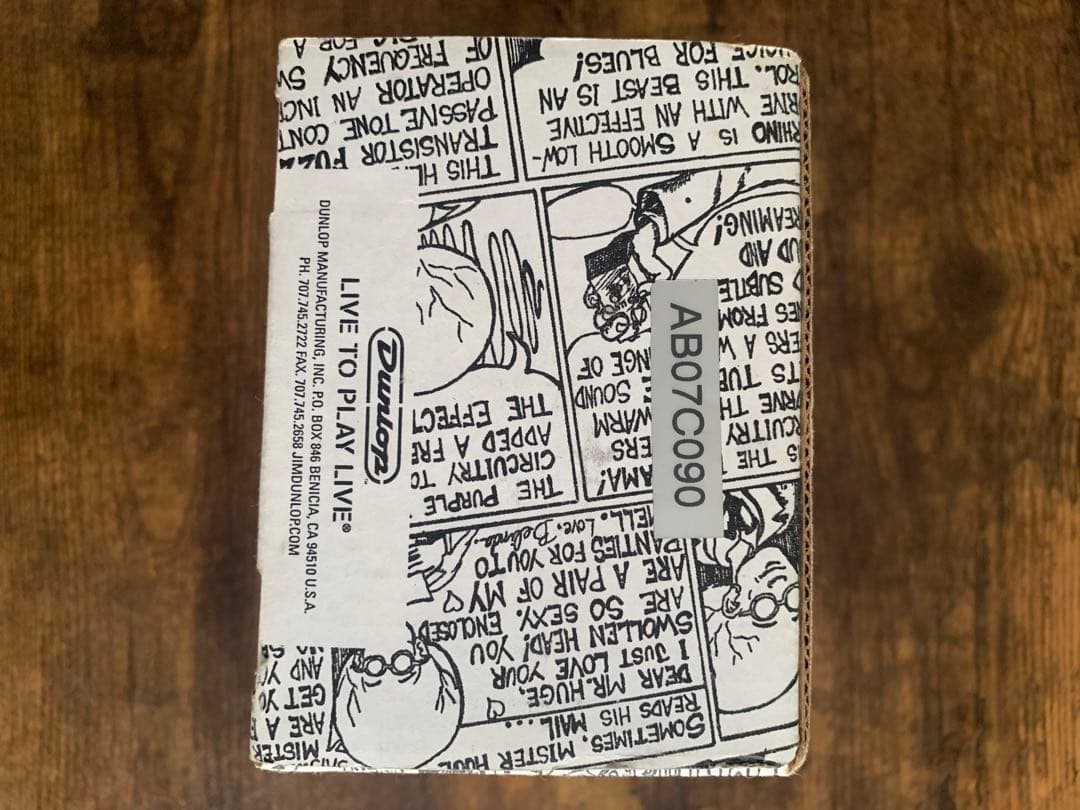 LIVE TO PLAY LIVE®
DUNLOP MANUFACTURING, INC. P.O. BOX 846 BENICIA, CA 94510 U.S.A.
PH. 707.745.2722 FAX. 707.745.2658 JIMDUNLOP.COM
Dunlop
AB07C090
SOMETIMES, MISTER HUGE
READS HIS MAIL...
DEAR MR. HUGE,
I JUST LOVE YOUR
SWOLLEN HEAD! YOU
ARE SO SEXY. ENCLOSED
ARE A PAIR OF MY
PANTIES FOR YOU TO
MELL. Love, Belinda
MISTER
ARE A
GET YO
AND YO
THE PURPLE
CIRCUITRY TO
ADDED A FRE
THE EFFECT
AMA!
S THE
RCUITRY ERS
DRIVE TH WARM
TS TUB SOUND
ERS A W NGE OF
ES FROM
SUBTLE
UD AND
REAMING!
RHINO IS A SMOOTH LOW-
RIVE WITH AN EFFECTIVE
ROL. THIS BEAST IS AN
HOICE FOR BLUES!
THIS HI
TRANSISTOR FUZZ
PASSIVE TONE CONT
OPERATOR AN INC
OF FREQUENCY SW
FOR A